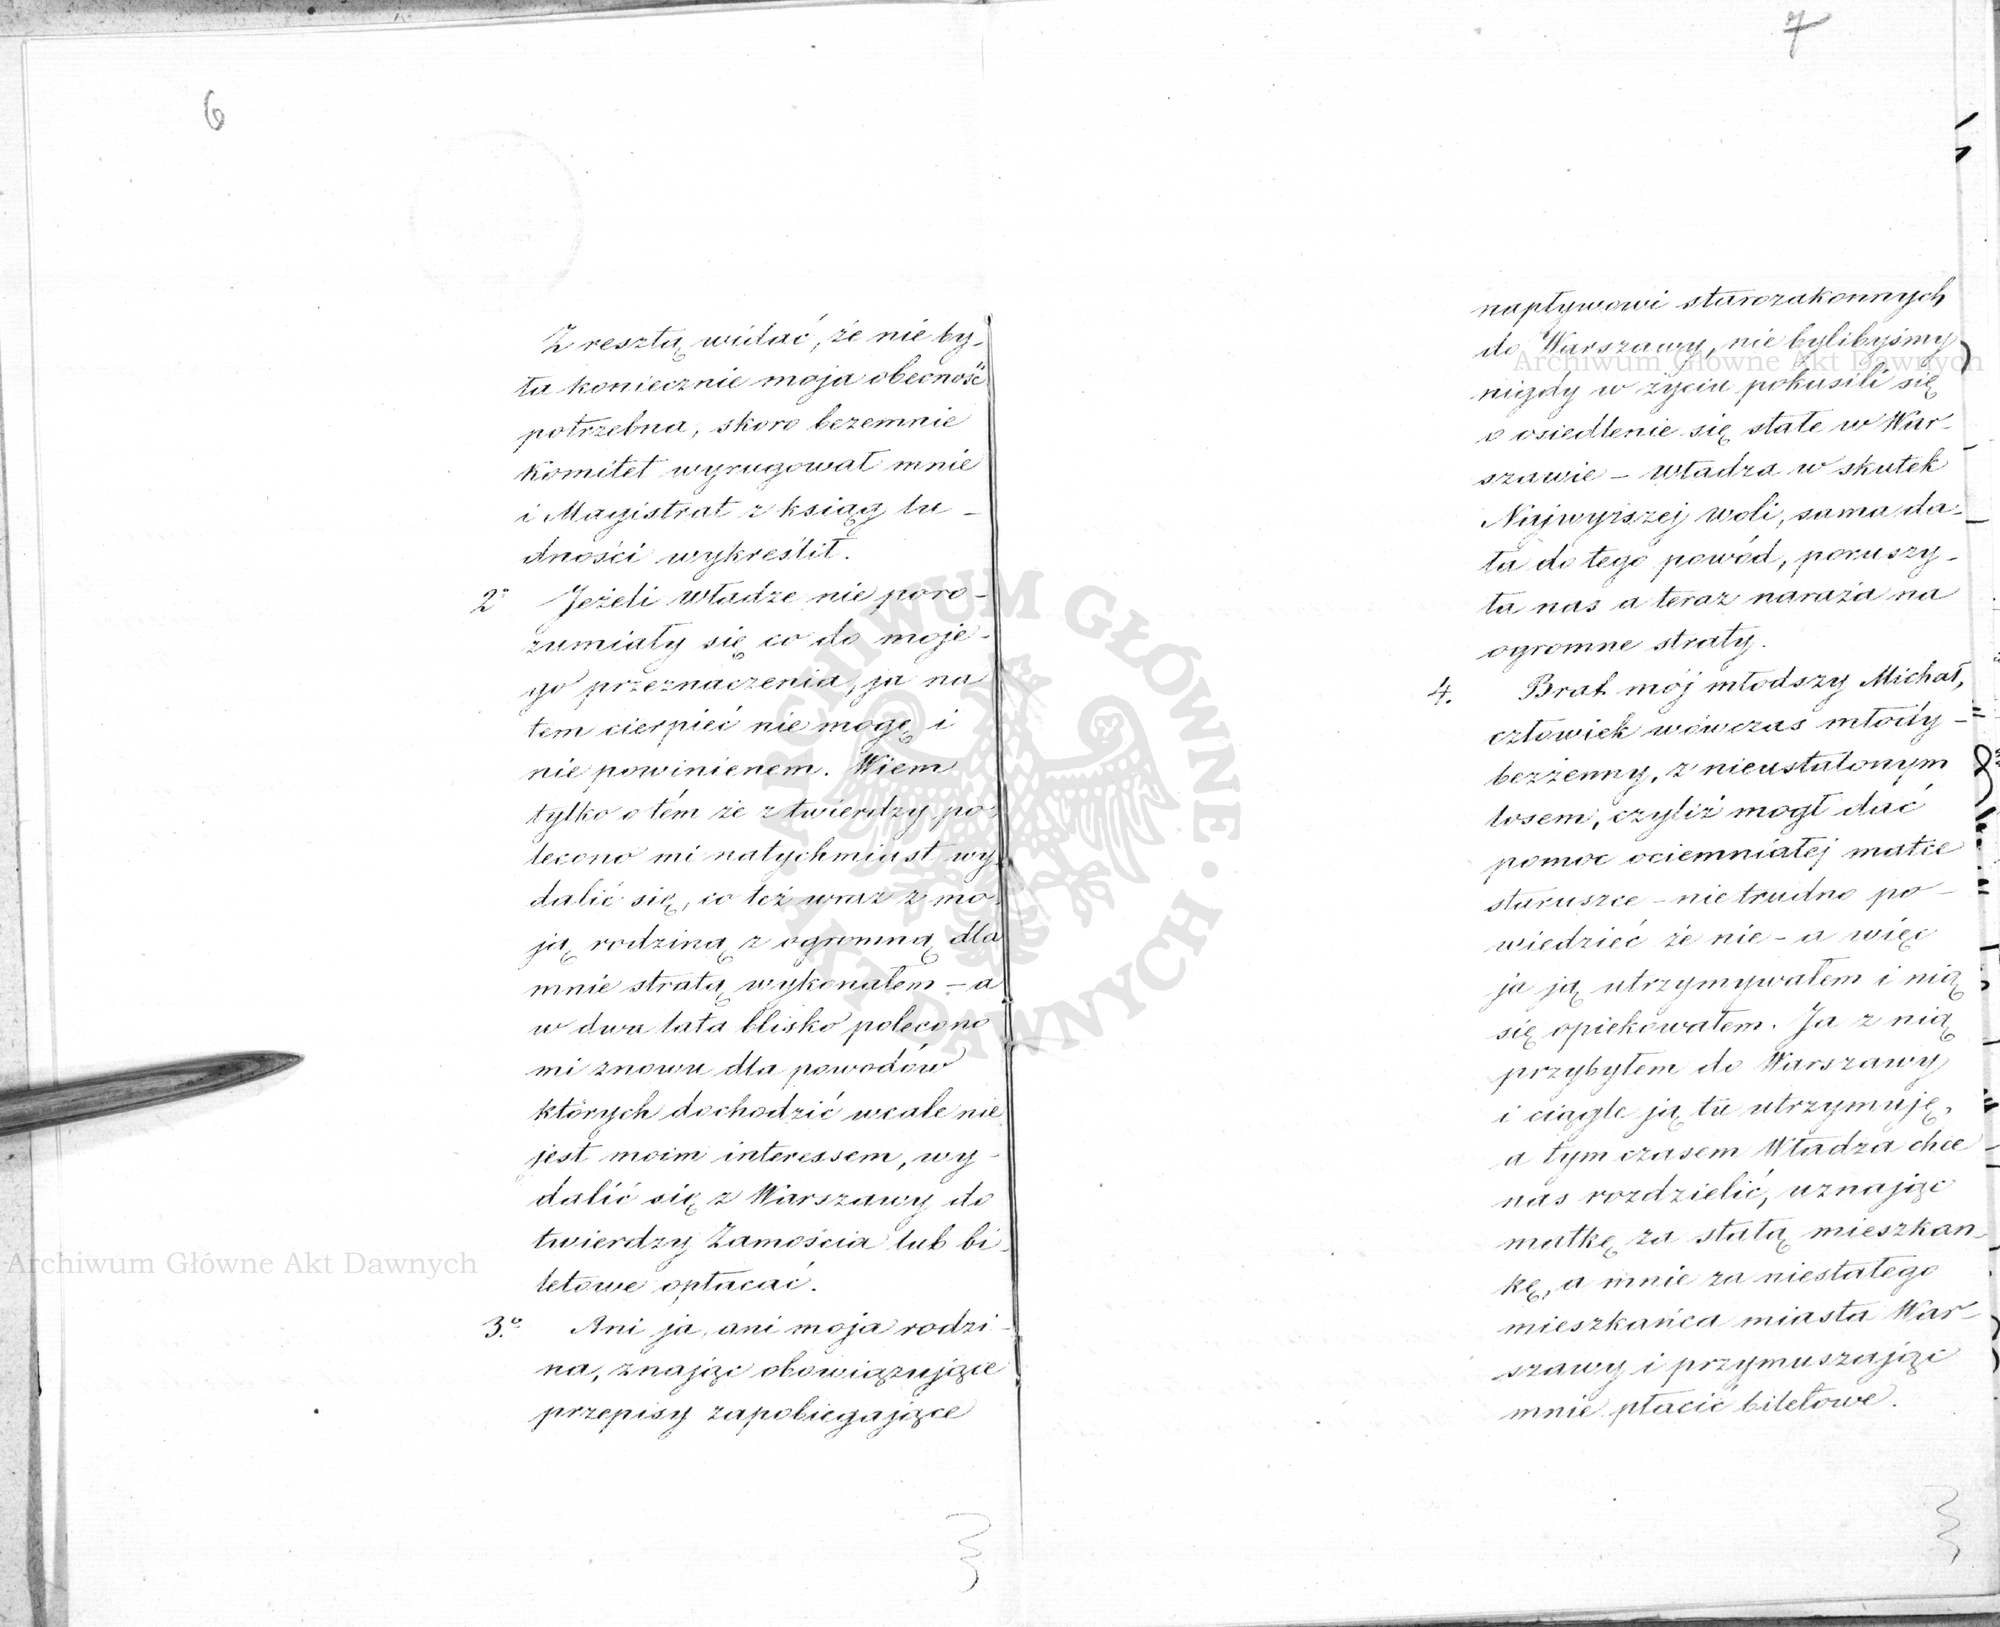 6
Z resztą widać, że nie by-
ła koniecznie moja obecność
potrzebna, skoro bezemnie
Komitet wyrugował mnie
i Magistrat z ksiąg lu-
dności wykreślił.
2o Jeżeli władze nie poro-
zumiały się co do moje-
go przeznaczenia, ja na
tem cierpieć nie mogę i
nie powinienem. Wiem
tylko o tém że z twierdzy po-
lecono mi natychmiast wy-
dalić się, co też wraz z mo-
ją rodziną z ogromną dla
mnie stratą wykonałem – a
w dwa lata blisko polecono
mi znowu dla powodów
których dochodzić wcale nie
jest moim interessem, wy-
dalić się z Warszawy do
twierdzy Zamościa lub bi-
letowe opłacać.
3.o Ani ja, ani moja rodzi-
na, znając obowiązujące
przepisy zapobiegające
7
napływowi starozakonnych
do Warszawy, nie bylibyśmy
nigdy w życiu pokusili się
o osiedlenie się stałe w War-
szawie – władza w skutek
Najwyższej woli, sama da-
ła do tego powód, poruszy-
ła nas a teraz naraża na
ogromne straty.
4. Brat mój młodszy Michał,
człowiek wówczas młody –
bezżenny, z nieustalonym
losem, czyliż mógł dać
pomoc ociemniałej matce
staruszce – nie trudno po-
wiedzieć że nie – a więc
ja ją utrzymywałem i nią
się opiekowałem. Ja z nią
przybyłem do Warszawy
i ciągle ją tu utrzymuję,
a tym czasem Władza chce
nas rozdzielić, uznając
matkę za stałą mieszkan-
kę, a mnie za niestałego
mieszkańca miasta War-
szawy i przymuszając
mnie płacić biletowe.
Archiwum Główne Akt Dawnych
Archiwum Główne Akt Dawnych
ARCHIWUM GŁÓWNE · AKT DAWNYCH ·